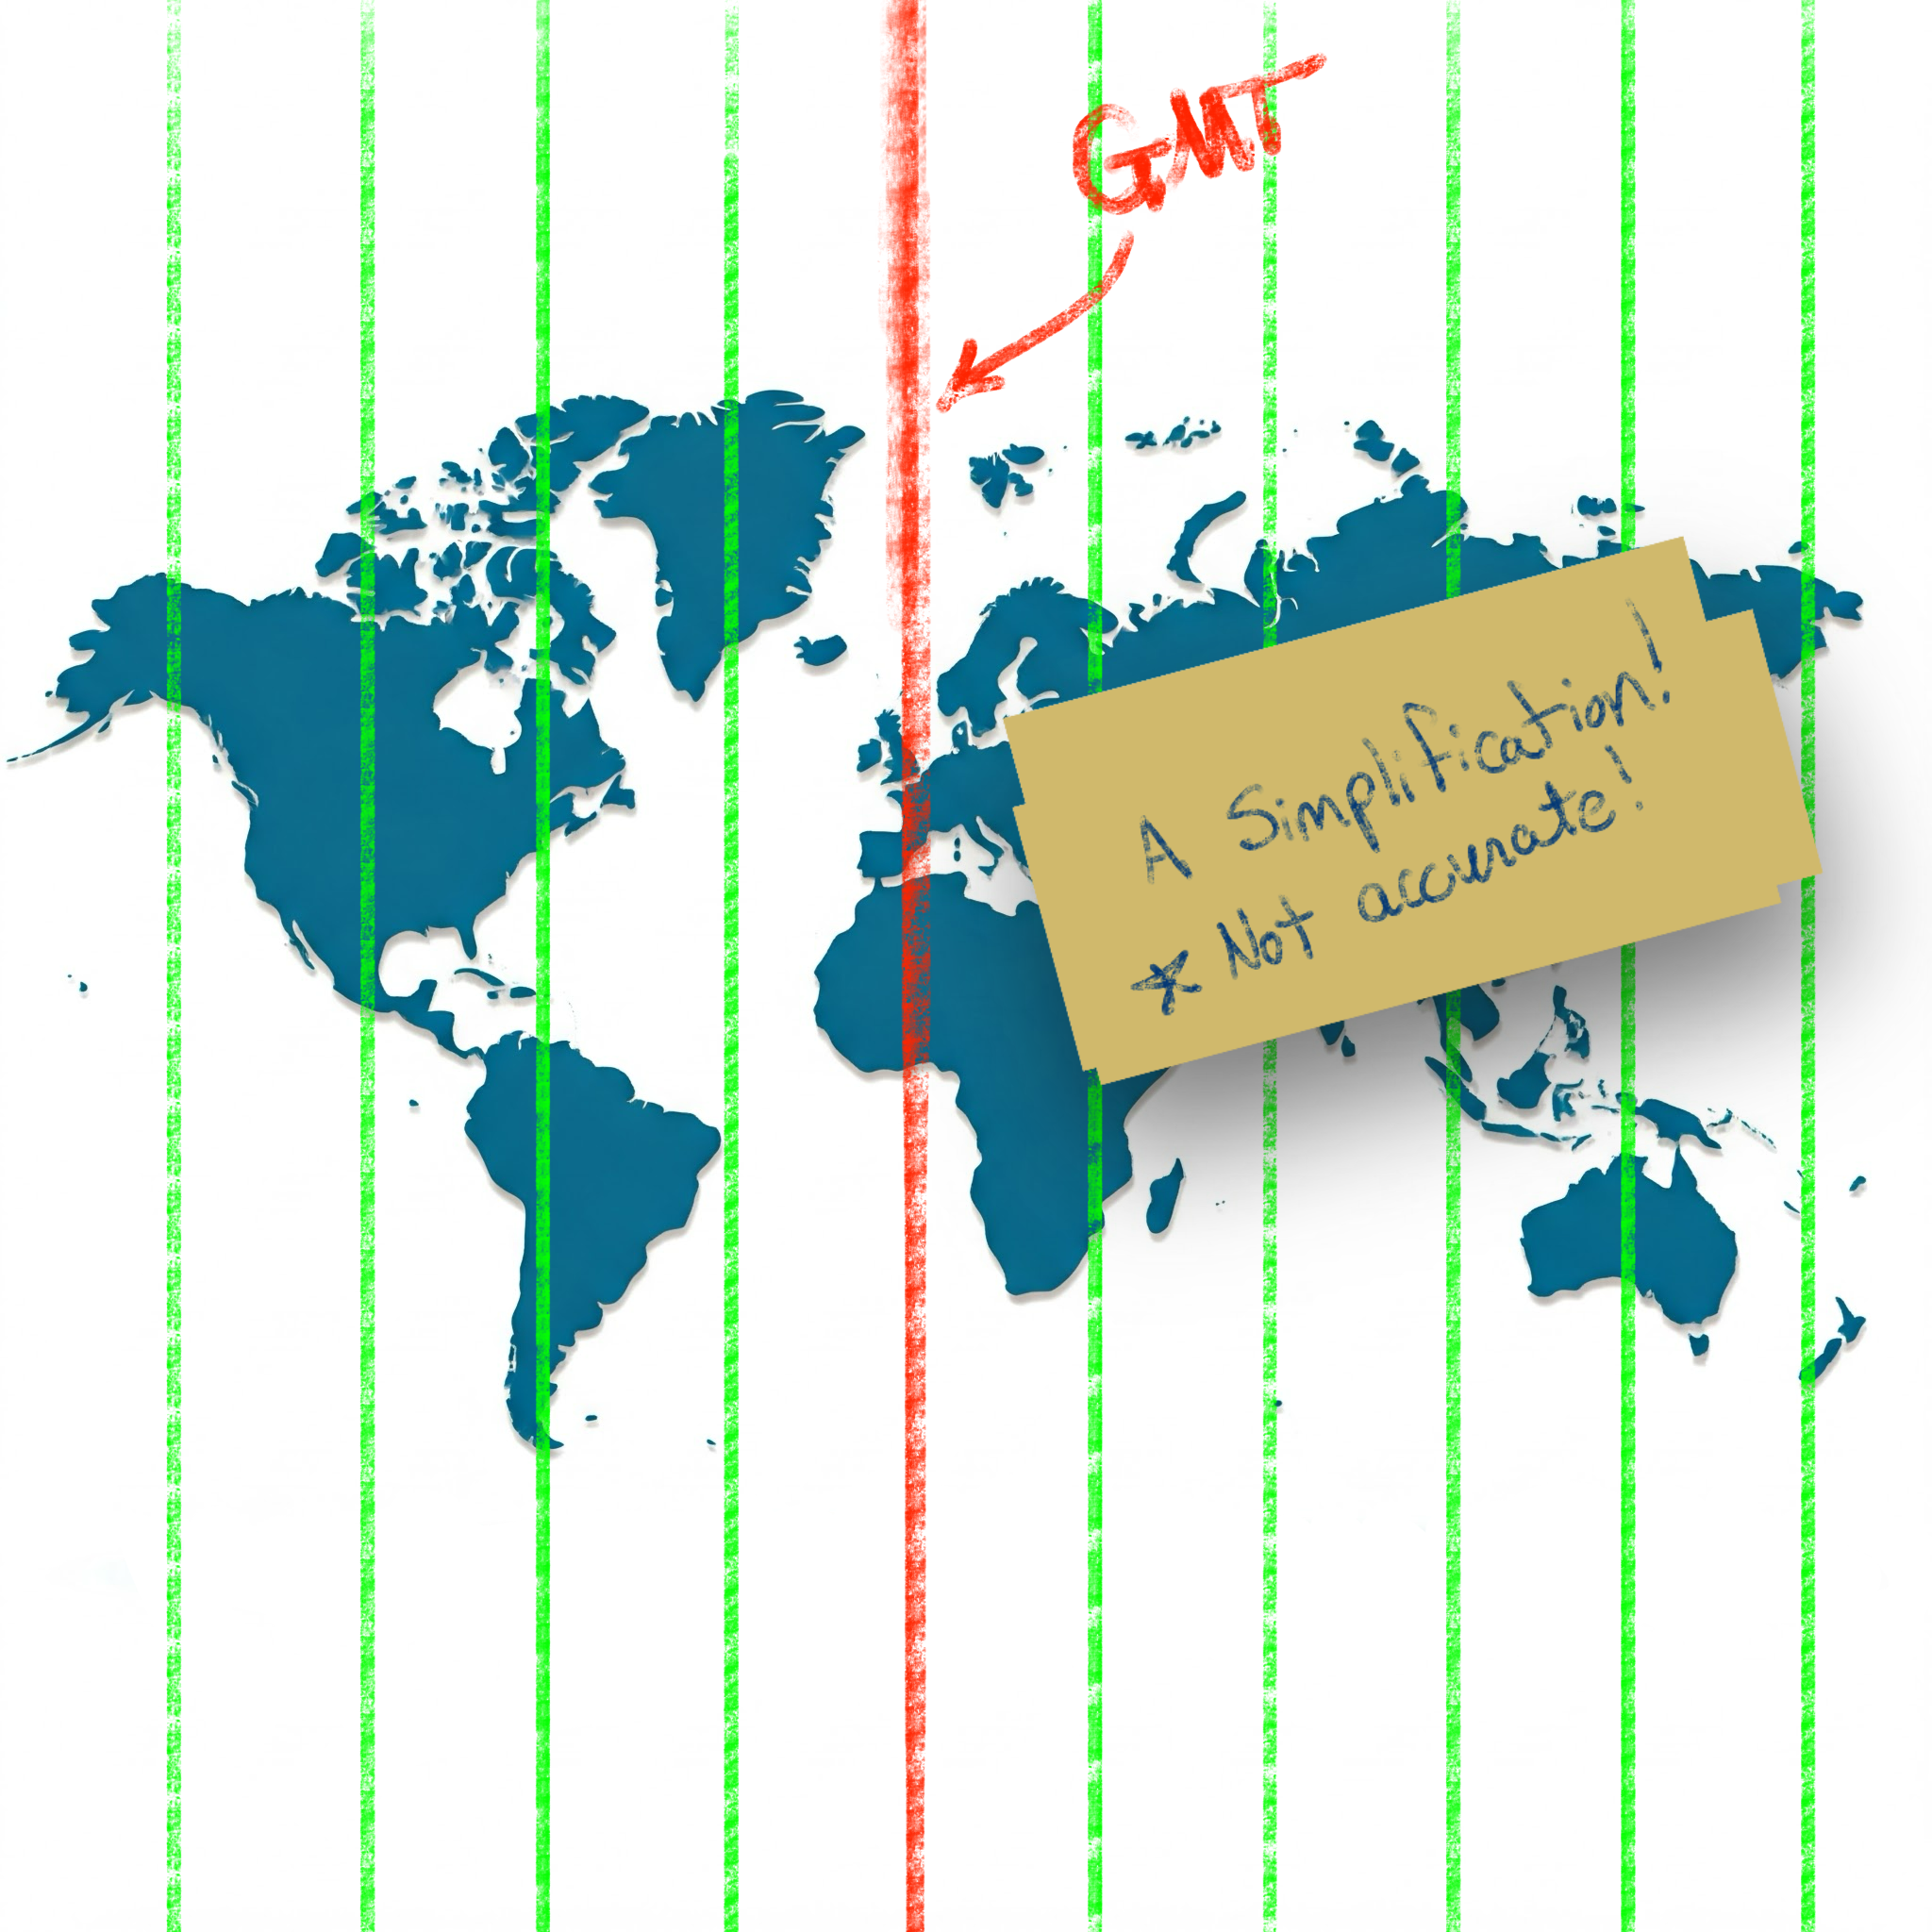 GMT
A Simplification!
* Not accurate!